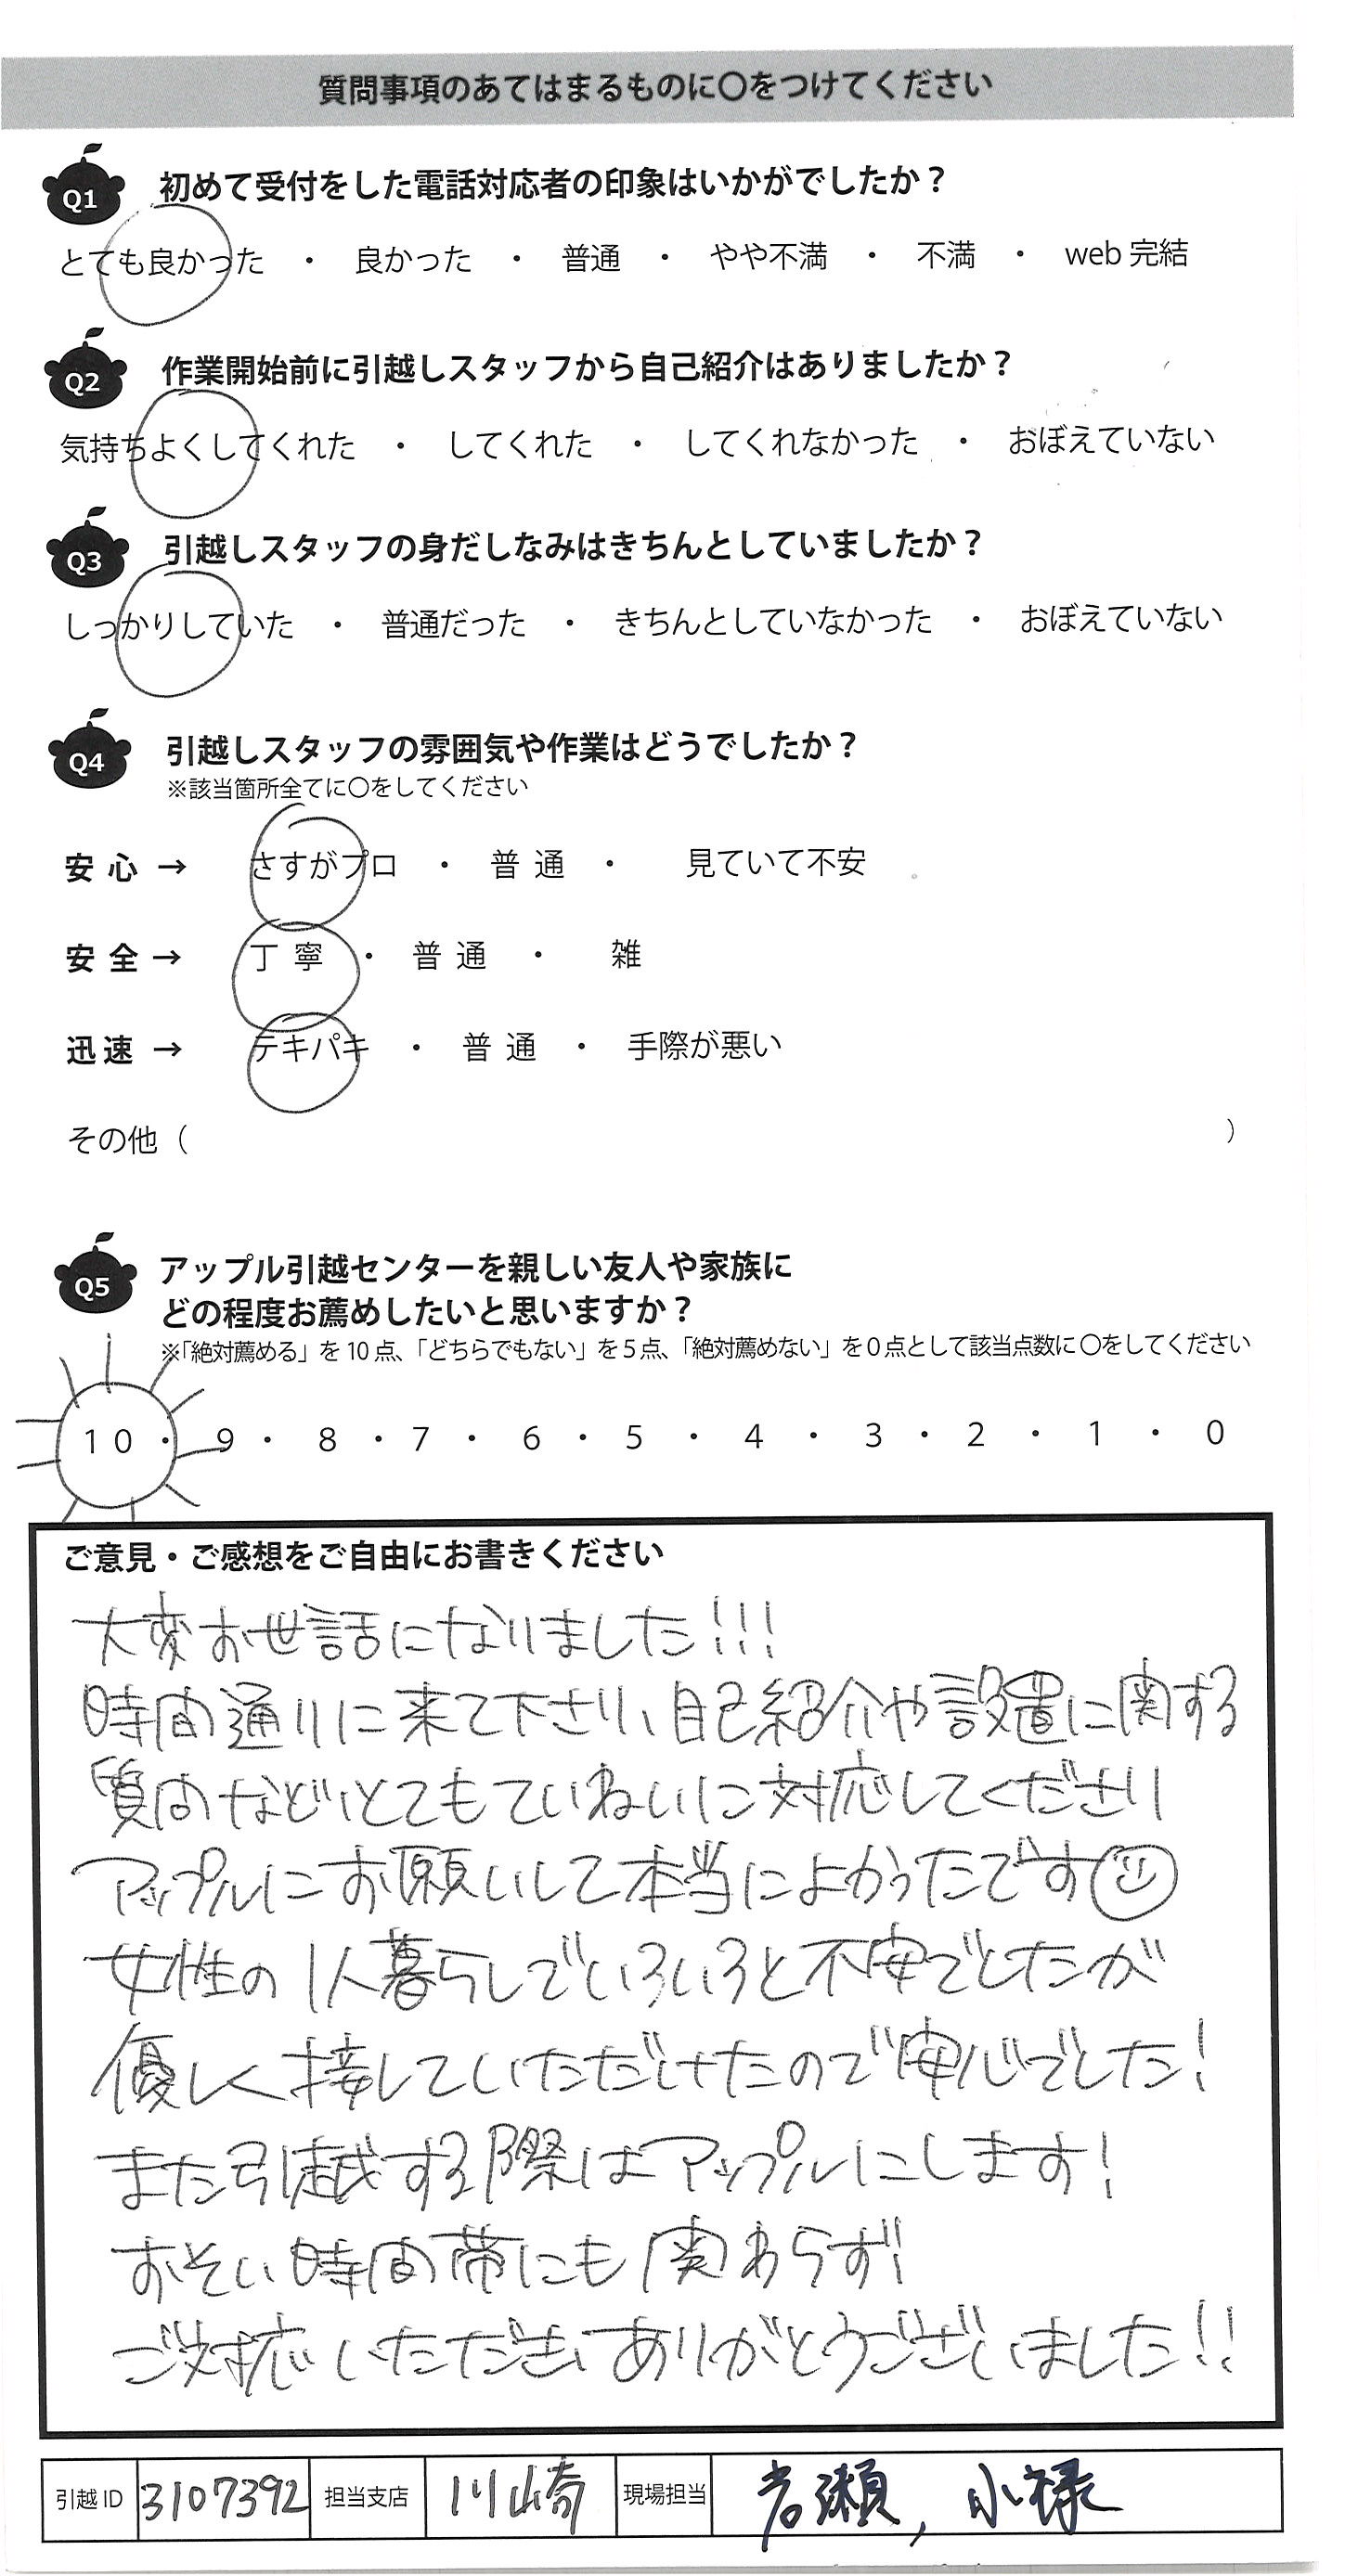 質問事項のあてはまるものに〇をつけてください
Q1 初めて受付をした電話対応者の印象はいかがでしたか？
とても良かった ・ 良かった ・ 普通 ・ やや不満 ・ 不満 ・ web 完結
Q2 作業開始前に引越しスタッフから自己紹介はありましたか？
気持ちよくしてくれた ・ してくれた ・ してくれなかった ・ おぼえていない
Q3 引越しスタッフの身だしなみはきちんとしていましたか？
しっかりしていた ・ 普通だった ・ きちんとしていなかった ・ おぼえていない
Q4 引越しスタッフの雰囲気や作業はどうでしたか？
※該当箇所全てに〇をしてください
安心 → さすがプロ ・ 普通 ・ 見ていて不安
安全 → 丁寧 ・ 普通 ・ 雑
迅速 → テキパキ ・ 普通 ・ 手際が悪い
その他（ ）
Q5 アップル引越センターを親しい友人や家族に
どの程度お薦めしたいと思いますか？
※「絶対薦める」を10点、「どちらでもない」を5点、「絶対薦めない」を0点として該当点数に〇をしてください
10 ・ 9 ・ 8 ・ 7 ・ 6 ・ 5 ・ 4 ・ 3 ・ 2 ・ 1 ・ 0
ご意見・ご感想をご自由にお書きください
大変お世話になりました!!!
時間通りに来て下さり、自己紹介や設置に関する
質問など、とてもていねいに対応してくださり
アップルにお願いして本当によかったです
女性の1人暮らしでいろいろと不安でしたが
優しく接していただけたので安心でした!
また引越する際はアップルにします!
おそい時間帯にも関わらず!
ご対応いただきありがとうございました!!
引越ID 3107392 担当支店 川崎 現場担当 岩瀬, 小禄